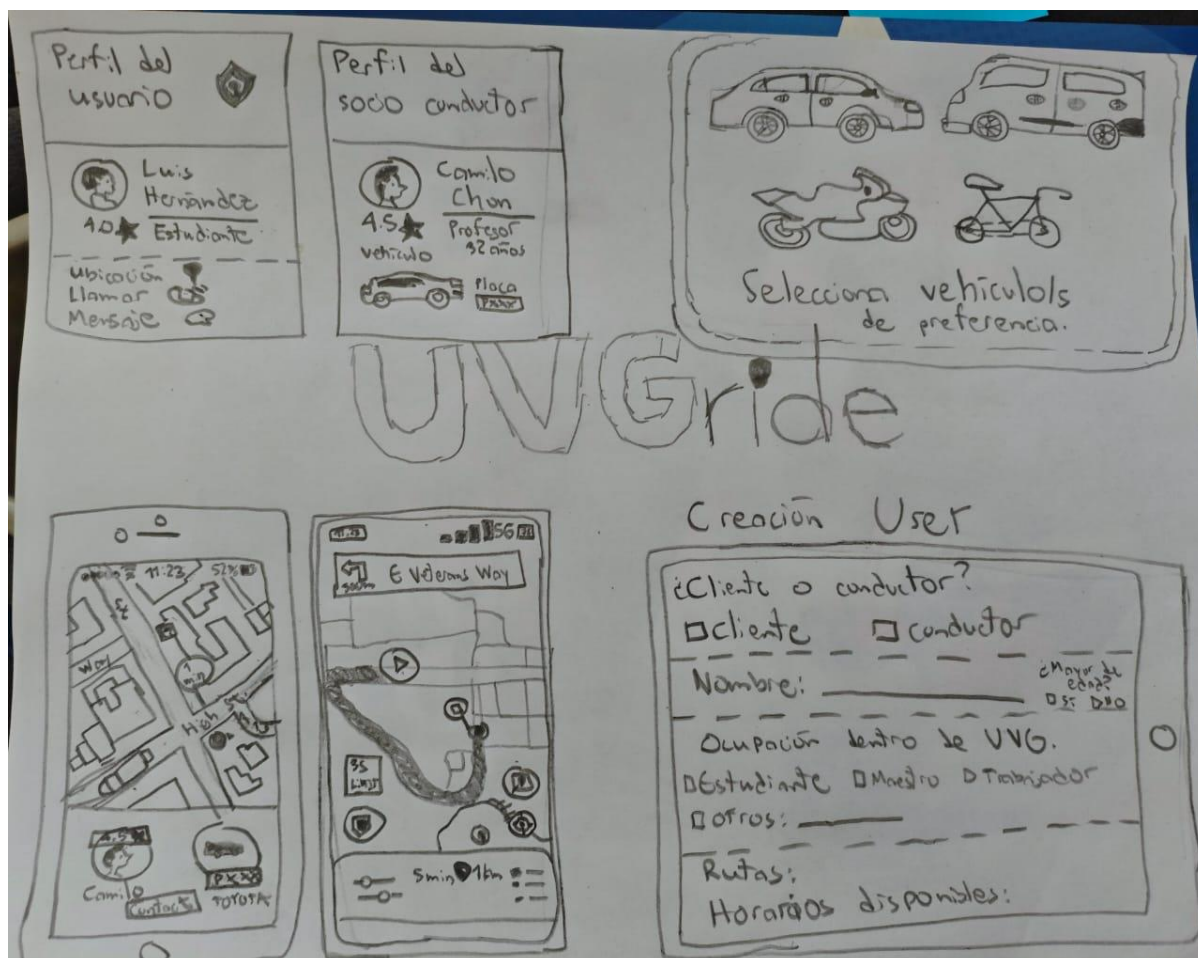 Perfil del
usuario
Luis
Hernández
4.0 Estudiante
Ubicación
Llamar
Mensaje
Perfil del
socio conductor
Camilo
Chon
4.5 Profesor
32 años
vehículo
Placa
PXXX
Selecciona vehículo/s
de preferencia.
UVGride
11:23 52%
St
Way
1
min
High St
4.5
Camilo
Contacto
PXXX
TOYOTA
11:23 5G
E Veterans Way
35
Limit
5min 1km
Creación User
¿Cliente o conductor?
Cliente conductor
Nombre:
¿Mayor de
edad?
Si No
Ocupación dentro de UVG.
Estudiante Maestro Trabajador
otros:
Rutas:
Horarios disponibles: